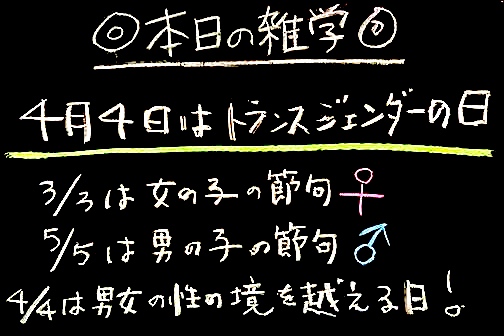 ◎本日の雑学◎
4月4日はトランスジェンダーの日
3/3は女の子の節句♀
5/5は男の子の節句♂
4/4は男女の性の境を越える日!